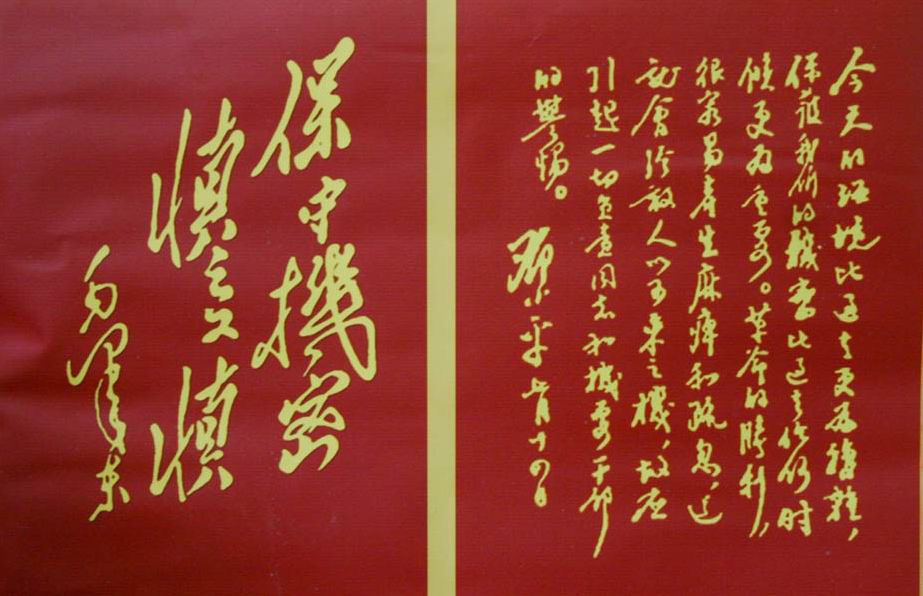 保守機密
慎之又慎
毛泽东
今天的环境比过去更为複雜，
保護我们的機密比过去任何时
候更为重要。革命的勝利，
很容易產生麻痺和疏忽，这
就會给敌人以可乘之機，故应
引起一切负责同志和機要干部
的警惕。
邓小平 七月十四日